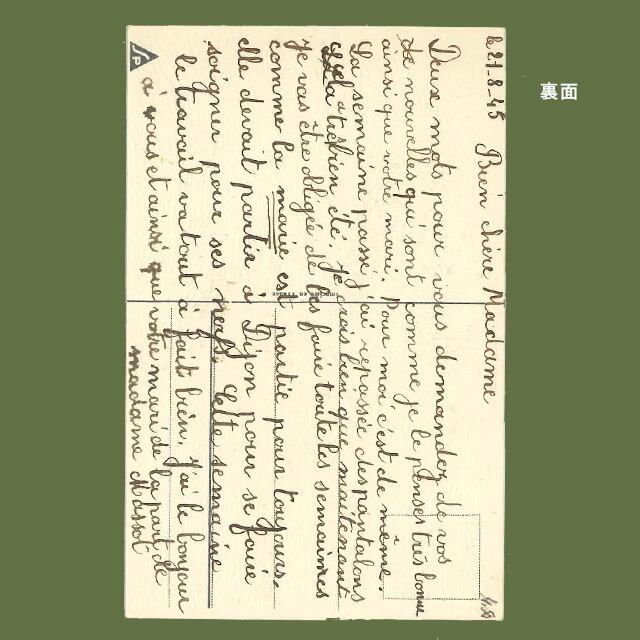 le 21-8-45
Bien chère Madame
Deux mots pour vous demandez de vos
de nouvelles qui sont comme je le penses très bonne
ainsi que votre mari. Pour moi c'est de même.
La semaine passé j'ai repassée des pantalons
cela a très bien été. Je crois bien que maitenant
je vas être obligée de les faire toutes les semaines
comme la marie est partie pour toujours.
elle devait partir à Dijon pour se faire
soigner pour ses nerfs. Cette semaine
le travail va tout à fait bien. J'ai le bonjour
à vous et ainsi que votre mari de la part de
madame Massot
裏面